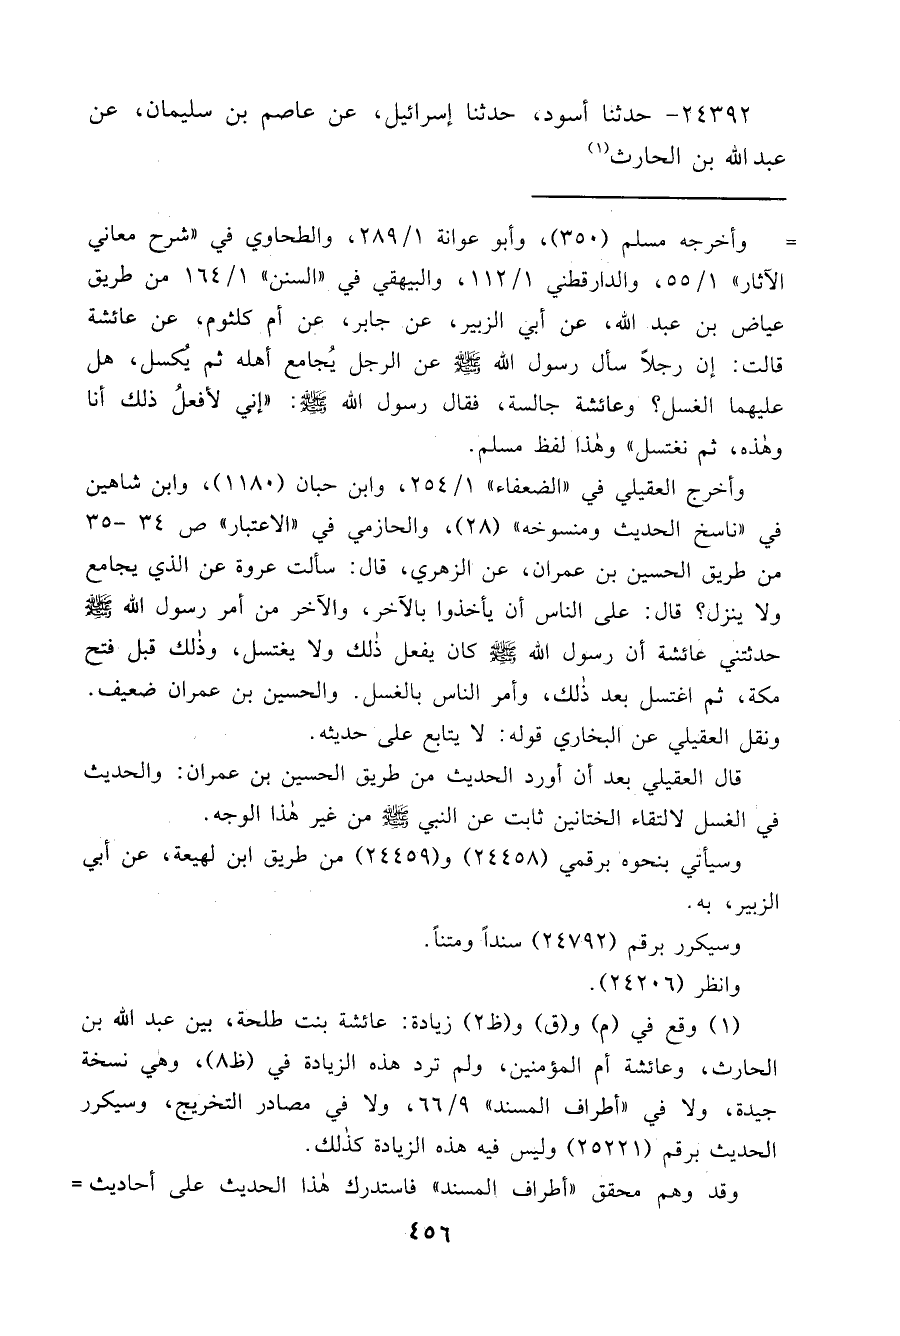 ٢٤٣٩٢- حدثنا أسود، حدثنا إسرائيل، عن عاصم بن سليمان، عن
عبد الله بن الحارث(١)
= وأخرجه مسلم (٣٥٠)، وأبو عوانة ٢٨٩/١، والطحاوي في «شرح معاني
الآثار» ٥٥/١، والدارقطني ١١٢/١، والبيهقي في «السنن» ١٦٤/١ من طريق
عياض بن عبد الله، عن أبي الزبير، عن جابر، عن أم كلثوم، عن عائشة
قالت: إن رجلاً سأل رسول الله ﷺ عن الرجل يُجامع أهله ثم يُكسل، هل
عليهما الغسل؟ وعائشة جالسة، فقال رسول الله ﷺ: «إني لأفعلُ ذلك أنا
وهٰذه، ثم نغتسل» وهٰذا لفظ مسلم.
وأخرج العقيلي في «الضعفاء» ٢٥٤/١، وابن حبان (١١٨٠)، وابن شاهين
في «ناسخ الحديث ومنسوخه» (٢٨)، والحازمي في «الاعتبار» ص ٣٤ -٣٥
من طريق الحسين بن عمران، عن الزهري، قال: سألت عروة عن الذي يجامع
ولا ينزل؟ قال: على الناس أن يأخذوا بالآخر، والآخر من أمر رسول الله ﷺ
حدثتني عائشة أن رسول الله ﷺ كان يفعل ذٰلك ولا يغتسل، وذٰلك قبل فتح
مكة، ثم اغتسل بعد ذٰلك، وأمر الناس بالغسل. والحسين بن عمران ضعيف.
ونقل العقيلي عن البخاري قوله: لا يتابع على حديثه.
قال العقيلي بعد أن أورد الحديث من طريق الحسين بن عمران: والحديث
في الغسل لالتقاء الختانين ثابت عن النبي ﷺ من غير هٰذا الوجه.
وسيأتي بنحوه برقمي (٢٤٤٥٨) و(٢٤٤٥٩) من طريق ابن لهيعة، عن أبي
الزبير، به.
وسيكرر برقم (٢٤٧٩٢) سنداً ومتناً.
وانظر (٢٤٢٠٦).
(١) وقع في (م) و(ق) و(ظ٢) زيادة: عائشة بنت طلحة، بين عبد الله بن
الحارث، وعائشة أم المؤمنين، ولم ترد هذه الزيادة في (ظ٨)، وهي نسخة
جيدة، ولا في «أطراف المسند» ٦٦/٩، ولا في مصادر التخريج، وسيكرر
الحديث برقم (٢٥٢٢١) وليس فيه هذه الزيادة كذٰلك.
وقد وهم محقق «أطراف المسند» فاستدرك هٰذا الحديث على أحاديث =
٤٥٦